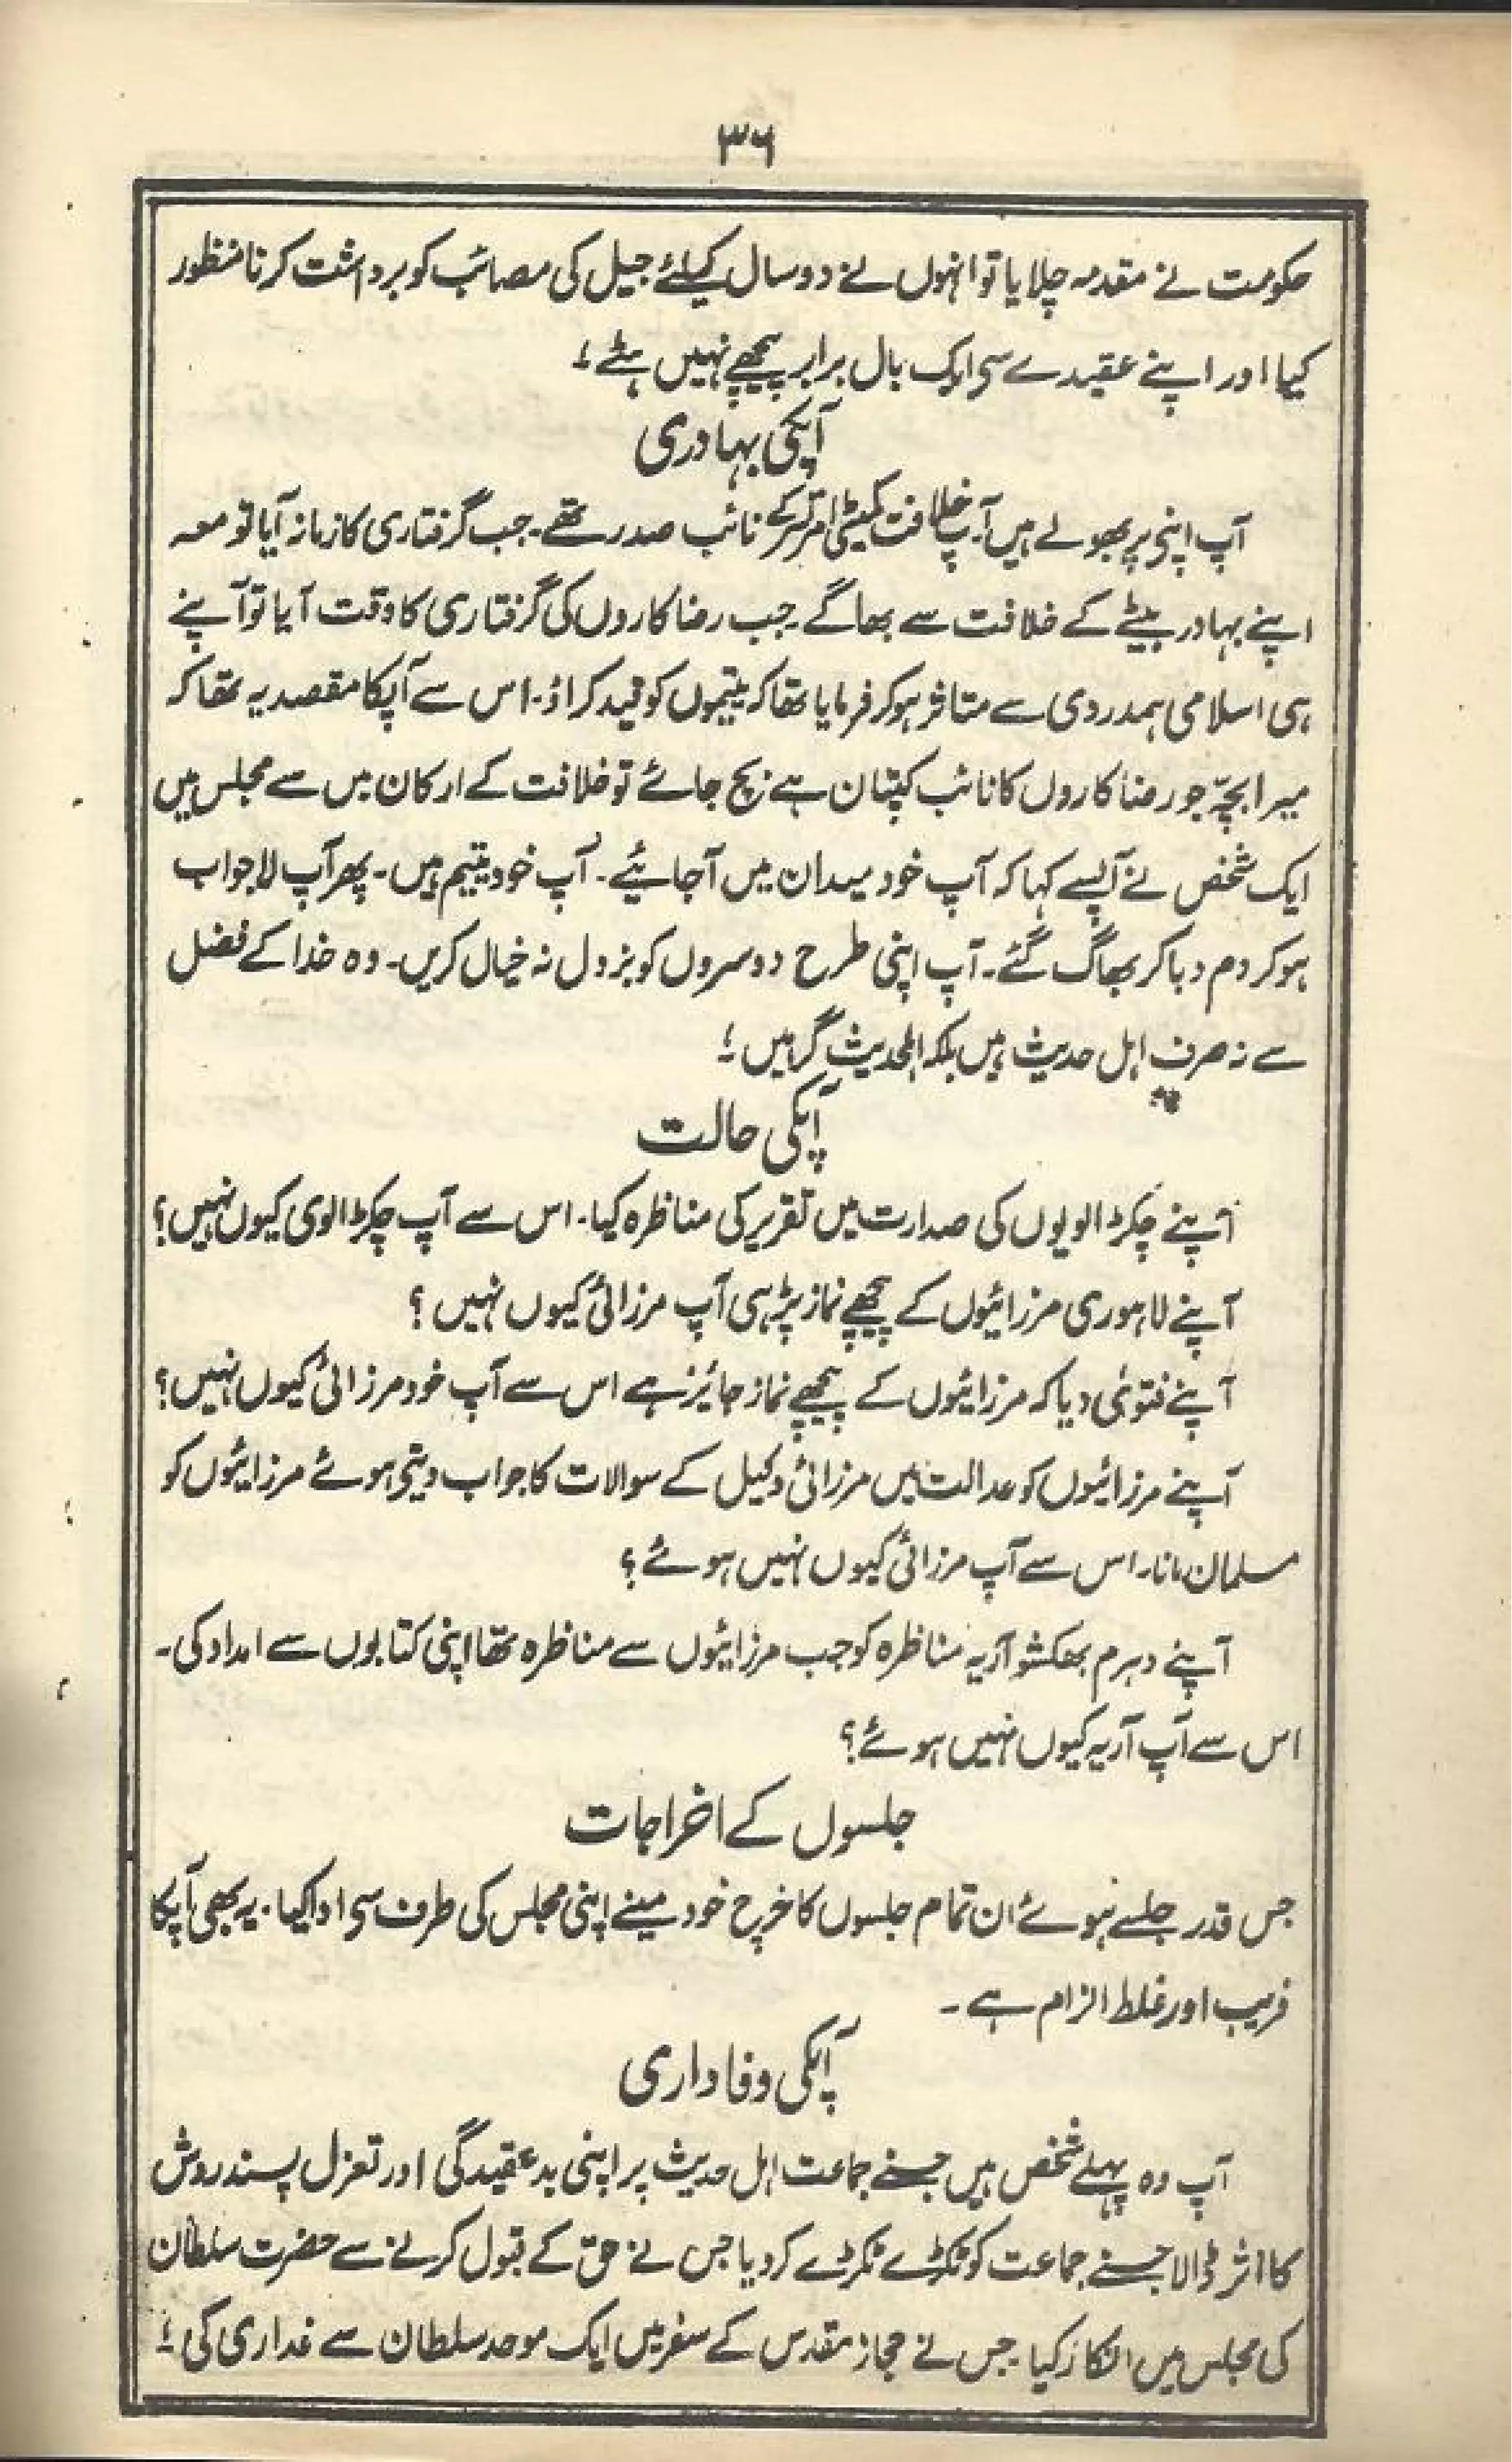 ۳۶
حکومت نے مقدمہ چلایا تو انہوں نے دو سال کیلئے جیل کی مصائب کو برداشت کرنا منظور
کیا اور اپنے عقیدے سی ایک بال برابر پیچھے نہیں ہٹے ؛
آپکی بہادری
آپ اپنی پر بھولے ہیں آپ خلافت کمیٹی امرتسر کے نائب صدر تھے۔ جب گرفتاری کا زمانہ آیا تو معہ
اپنے بہادر بیٹے کے خلافت سے بھاگے۔ جب رضاکاروں کی گرفتاری کا وقت آیا تو آپنے
ہی اسلامی ہمدردی سے متاثر ہو کر فرمایا تھا کہ یتیموں کو قید کراؤ۔ اس سے آپکا مقصد یہ تھا کہ
میرا بچہ جو رضاکاروں کا نائب کپتان ہے بچ جائے تو خلافت کے ارکان میں سے مجلس میں
ایک شخص نے آپسے کہا کہ آپ خود میدان میں آجائیے۔ آپ خود یتیم ہیں۔ پھر آپ لاجواب
ہو کر دم دبا کر بھاگ گئے۔ آپ اپنی طرح دوسروں کو بزدل نہ خیال کریں۔ وہ خدا کے فضل
سے نہ صرف اہل حدیث ہیں بلکہ اہلحدیث گر ہیں ؛
آپکی حالت
آپنے چکڑالویوں کی صدارت میں تقریر کی مناظرہ کیا۔ اس سے آپ چکڑالوی کیوں نہیں؟
آپنے لاہوری مرزائیوں کے پیچھے نماز پڑہی آپ مرزائی کیوں نہیں ؟
آپنے فتویٰ دیا کہ مرزائیوں کے پیچھے نماز جائز ہے اس سے آپ خود مرزائی کیوں نہیں؟
آپنے مرزائیوں کو عدالت میں مرزائی وکیل کے سوالات کا جواب دیتی ہوئے مرزائیوں کو
مسلمان مانا۔ اس سے آپ مرزائی کیوں نہیں ہوئے ؟
آپنے دہرم بھکشو آریہ مناظرہ کو جب مرزائیوں سے مناظرہ تھا اپنی کتابوں سے امداد کی۔
اس سے آپ آریہ کیوں نہیں ہوئے؟
جلسوں کے اخراجات
جس قدر جلسے ہوئے ان تمام جلسوں کا خرچ خود مینے اپنی مجلس کی طرف سی ادا کیا۔ یہ بھی آپکا
فریب اور غلط الزام ہے ۔
آپکی وفاداری
آپ وہ پہلے شخص ہیں جسنے جماعت اہل حدیث پر اپنی بدعقیدگی اور تعزل پسند روش
کا اثر ڈالا جسنے جماعت کو ٹکڑے ٹکڑے کر دیا جس نے حق کے قبول کرنے سے حضرت سلطان
کی مجلس میں انکار کیا۔ جس نے حجاز مقدس کے سفر میں ایک موحد سلطان سے غداری کی ؛